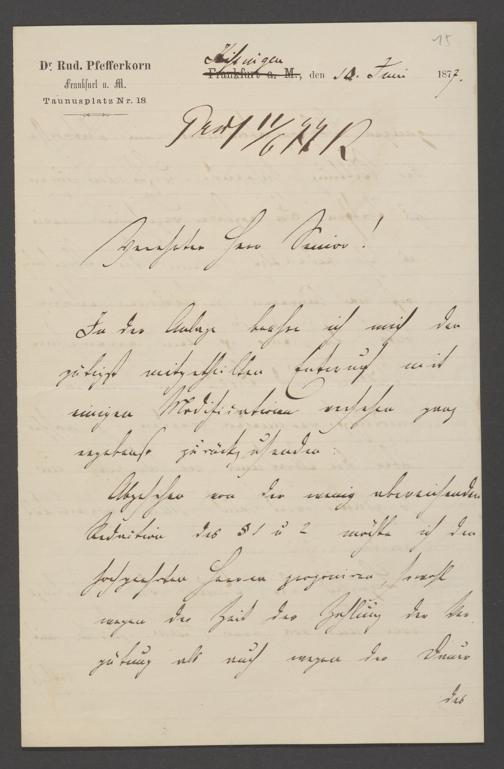 15
Dr. Rud. Pfefferkorn
Frankfurt a. M.
Taunusplatz Nr. 18
Kissingen
Frankfurt a. M., den 10. Juni 1877.
11/6 77 R
Verehrter Herr Senior!
In der Anlage beehre ich mich den
gütigst mitgetheilten Entwurf mit
einigen Modificationen versehen ganz
ergebenst zurückzusenden.
Abgesehen von der wenig abweichenden
Redaction des § 1 u 2 möchte ich den
hochgeehrten Herren proponiren, sowohl
wegen der Zeit der Zahlung der Ver-
gütung als auch wegen der Dauer
des